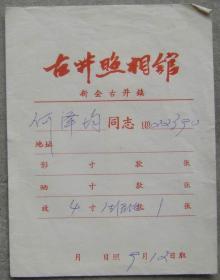 古井照相馆
新会古井镇
何泽均同志
地址
影 寸 款 张
晒 寸 款 张
放 4 寸 款 1 张
月 日照 9月12日取